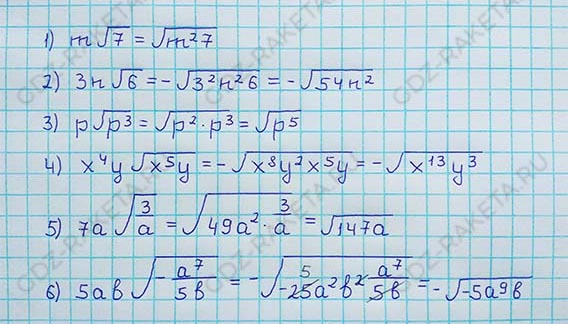 1) m√7 = √m²7
2) 3n√6 = -√3²n²6 = -√54n²
3) p√p³ = √p²·p³ = √p⁵
4) x⁴y √x⁵y = -√x⁸y²x⁵y = -√x¹³y³
5) 7a √(3/a) = √(49a²·3/a) = √147a
6) 5ab √(-a⁷/5b) = -√(-25a²b² a⁷/5b) 5 = -√-5a⁹b
GDZ-RAKETA.RU